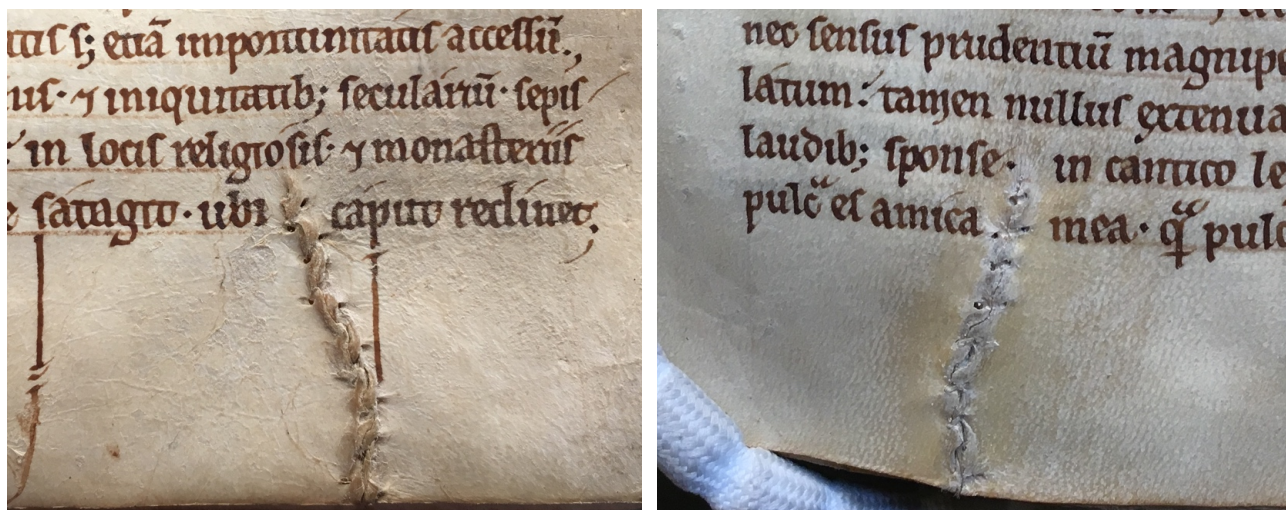 s; etiā importunitatis accessū.,
⁊ iniquitatib; seculariū· sepiſ
in locis religiosis· ⁊ monasteriis
satagit· ubi caput reclinet,
nec sensus prudentiū magnip
latum: tamen nullus extenua
laudib; sponse· in cantico le
pulc̄ es amica mea· q̄ pulc